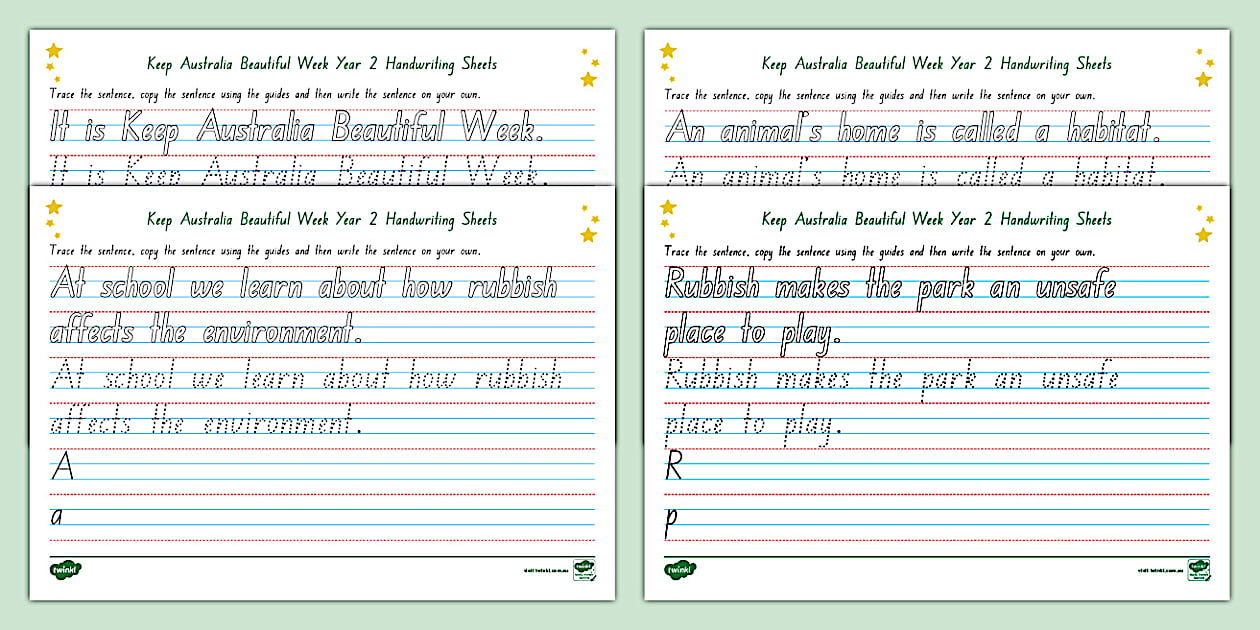 Keep Australia Beautiful Week Year 2 Handwriting Sheets
Trace the sentence, copy the sentence using the guides and then write the sentence on your own.
It is Keep Australia Beautiful Week.
It is Keep Australia Beautiful Week.
Keep Australia Beautiful Week Year 2 Handwriting Sheets
Trace the sentence, copy the sentence using the guides and then write the sentence on your own.
An animal's home is called a habitat.
An animal's home is called a habitat.
Keep Australia Beautiful Week Year 2 Handwriting Sheets
Trace the sentence, copy the sentence using the guides and then write the sentence on your own.
At school we learn about how rubbish
affects the environment.
At school we learn about how rubbish
affects the environment.
A
a
twinkl
visit twinkl.com.au
twinkl
Keep Australia Beautiful Week Year 2 Handwriting Sheets
Trace the sentence, copy the sentence using the guides and then write the sentence on your own.
Rubbish makes the park an unsafe
place to play.
Rubbish makes the park an unsafe
place to play.
R
p
twinkl
visit twinkl.com.au
twinkl